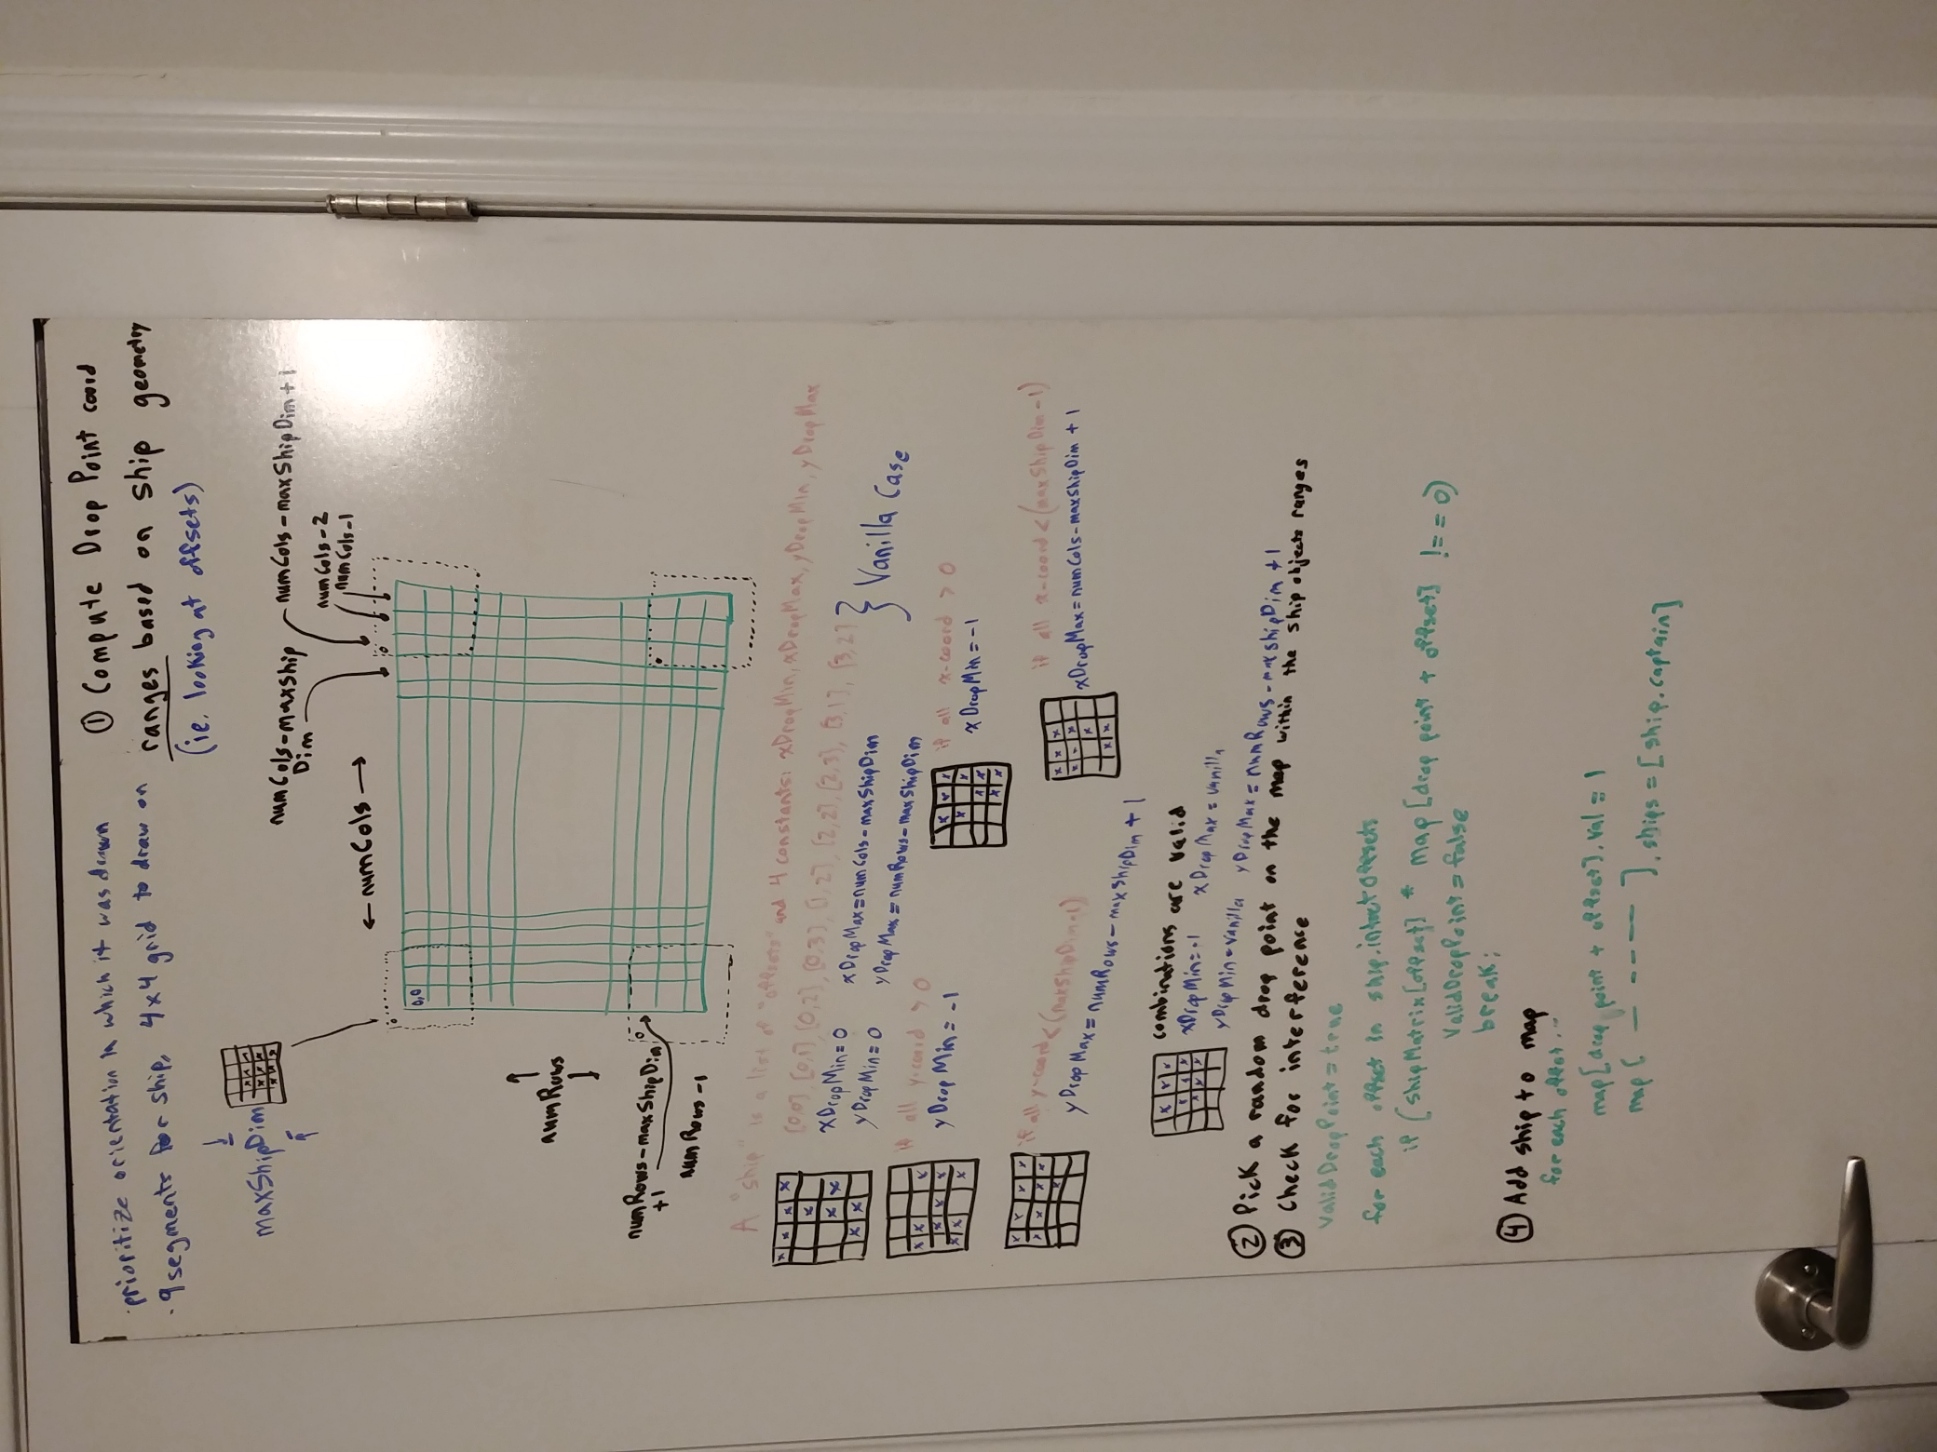 · prioritize orientation in which it was drawn
· 9 segments for ship, 4x4 grid to draw on
① Compute Drop Point coord
ranges based on ship geometry
(ie. looking at offsets)
maxShipDim
numCols-maxShip
Dim
numCols-maxShipDim+1
numCols-2
numCols-1
← numCols →
0,0
numRows
numRows-maxShipDim
+1
numRows-1
A "ship" is a list of "offsets" and 4 constants: xDropMin, xDropMax, yDropMin, yDropMax
[0,0], [0,1], [0,2], [0,3], [1,2], [2,2], [2,3], [3,1], [3,2]
xDropMin=0
xDropMax=numCols-maxShipDim
yDropMin=0
yDropMax=numRows-maxShipDim
} Vanilla Case
if all y-coord > 0
yDropMin=-1
if all x-coord > 0
xDropMin=-1
if all y-coord<(maxShipDim-1)
yDropMax=numRows-maxShipDim+1
if all x-coord<(maxShipDim-1)
xDropMax=numCols-maxShipDim+1
combinations are valid
xDropMin=-1 xDropMax=vanilla
yDropMin=vanilla yDropMax=numRows-maxShipDim+1
② Pick a random drop point on the map within the ship objects ranges
③ Check for interference
validDropPoint=true
for each offset in ship.intactOffsets
if (shipMatrix[offset] * map[drop point + offset] !==0)
validDropPoint=false
break;
④ Add ship to map
for each offset..
map[drop point + offset].val = 1
map[ — ---- ].ships = [ship.captain]